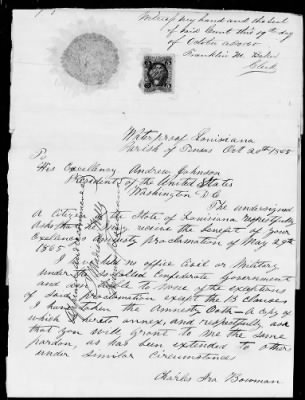 Witness my hand and the seal
of said Court this 19th day
of October 1865
Franklin H.
Clerk
Waterproof Louisiana
Parish of Tensas Oct 20th 1865
To
His Excellency Andrew Johnson
President of the United States
Washington D.C.
The undersigned
A Citizen of the State of Louisiana respectfully
asks that he may receive the benefit of your
Excellency's Amnesty proclamation of May 29th
1865
I have held no office Civil or Military
under the so called Confederate Government
and am liable to none of the exceptions
of said proclamation except the 13 clauses
I have taken the Amnesty Oath - A copy of
which I hereto annex, and respectfully ask
that you will grant to me the same
pardon, as has been extended to others
under similar circumstances
Charles Ira Bowman